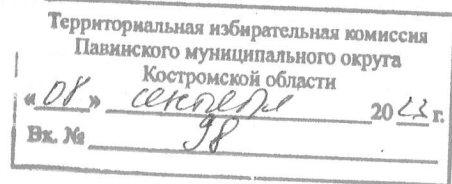 Территориальная избирательная комиссия
Павинского муниципального округа
Костромской области
«08» сентября 2023 г.
Вх. № 98